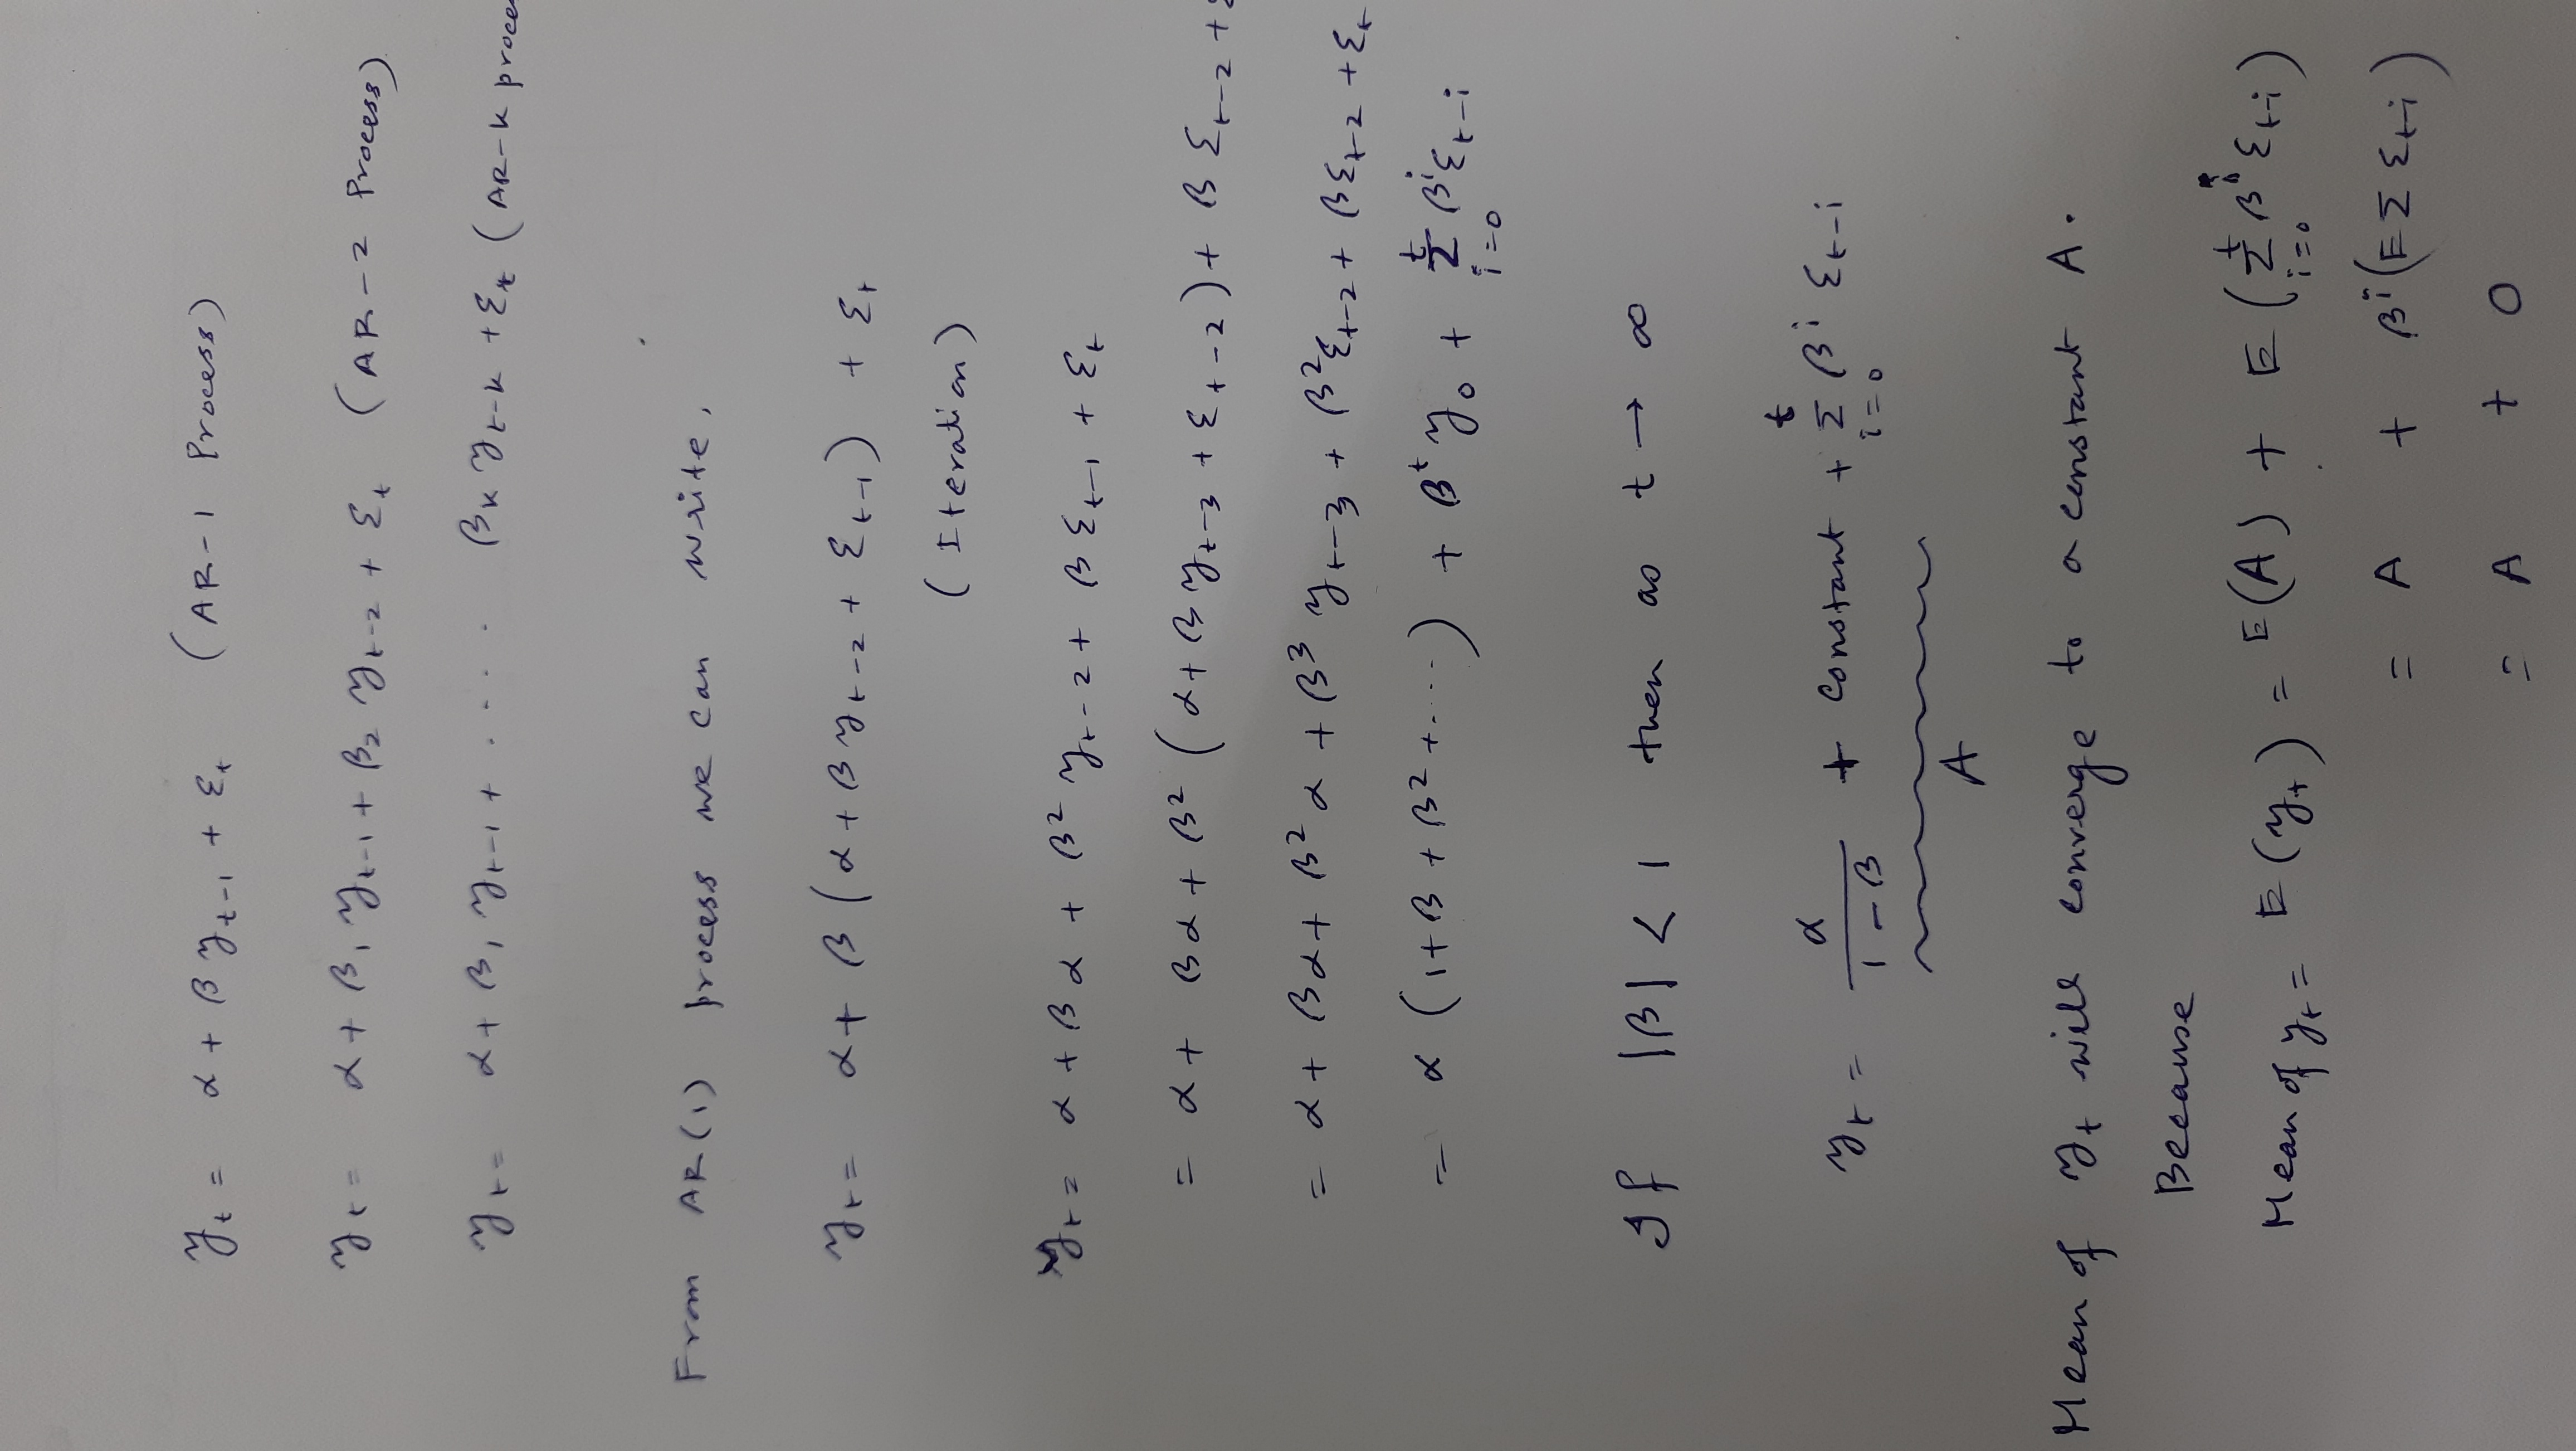 y_t = α + β y_{t-1} + ε_t (AR-1 Process)
y_t = α + β_1 y_{t-1} + β_2 y_{t-2} + ε_t (AR-2 Process)
y_t = α + β_1 y_{t-1} + ..... β_k y_{t-k} + ε_t (AR-k proce
From AR(1) process we can write,
y_t = α + β (α + β y_{t-2} + ε_{t-1}) + ε_t
(Iteration)
y_t = α + βα + β² y_{t-2} + β ε_{t-1} + ε_t
= α + βα + β² (α + β y_{t-3} + ε_{t-2}) + β ε_{t-2} +
= α + βα + β²α + β³ y_{t-3} + β² ε_{t-2} + β ε_{t-2} + ε_t
= α (1 + β + β² + ....) + β^t y_0 + Σ_{i=0}^{t} β^i ε_{t-i}
If |β| < 1 then as t → ∞
y_t = α/(1-β) + constant + Σ_{i=0}^{t} β^i ε_{t-i}
A
Mean of y_t will converge to a constant A.
Because
Mean of y_t = E(y_t) = E(A) + E(Σ_{i=0}^{t} β^i ε_{t-i})
= A + β^i (E Σ ε_{t-i})
= A + 0